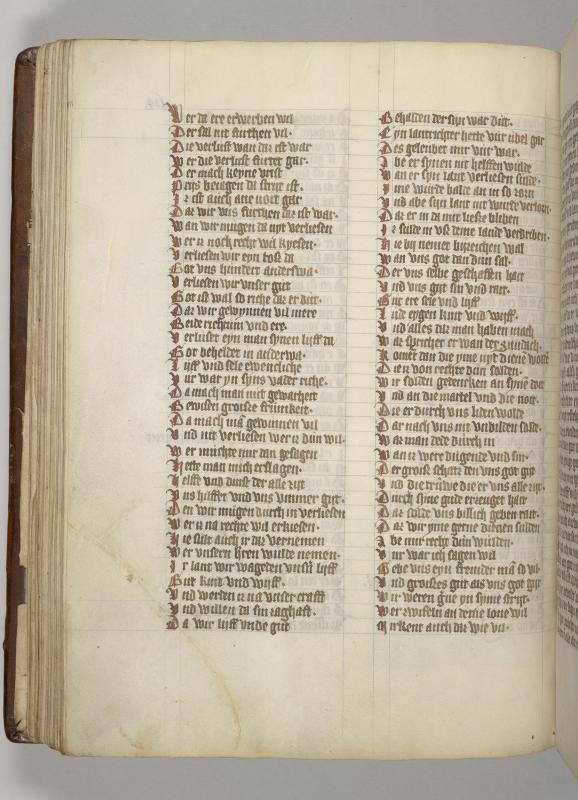 Wer da ere erwerben wil
Der sal nit furthen vil·
Die verlust wan daz ist war
Wer die verlust furtet gar·
Der mach keyne vrist
Prijs beiagen da strijt ist·
Ir ist auch ane vort gar
Dar wir vns furthen daz ist war·
Wan wir mugen da nyt verliesen
Wer iz noch recht wil kyesen·
Verliesen wir eyn dofz da
Got vns hundert anderswa·
Verliesen wir vnser gut
Got ist wal so riche daz er dut·
Daz wir gewynnen vil mere
Beide richtum vnd ere·
Verluset eyn man synen lijff da
Got behelder in anderwa·
Lijff vnd sele ewencliche
Vur war yn syns vader riche·
Da mach man mit gewarheit
Bewisen groisze frumkeit·
Da mach mā gewinnen vil
Vnd nit verliesen wer iz dun wil·
Wer muchte nur dan gesagen
Hette man mich erslagen·
Helffe vnd dunst der alle zijt
Vns hilffet vnd vns vmmer gijt·
Den wir mugen durch in verliesen
Wer iz na rechte wil erkiesen·
Ir sult auch ir daz vernemen
Wer vnsern heren wulde nemen·
Ir lant wir wageden vnsñ lijff
Gut kint vnd wijff·
Vnd werden iz na vnser crafft
Vnd willen da sin zaghaft·
Da wir lijff vnde gut
Behalden der syn war dut·
Eyn lantrichter hette vur ubel gar
Des geleubet mir vur war·
Abe er synen nit helffen wulde
Wan er syn lant verliesen sulde·
Ime wurde balde an in so zorn
Vnd abe syn lant nit wurde verlorn·
Daz er in da mit liesze bliben
Ir sulde in vsz deme lande verdriben·
Hie bij nemet bizeichen wal
Wan vns got dan dun sal·
Der vns selbe geschaffen hait
Vnd vns gijt sin vnd rait·
Gut ere sele vnd lijff
Lude eygen kint vnd wijff·
Vnd alles daz man haben mach
Waz sprichet er wan der sundich
Komet dan die yme nyt diene wolde
Die iz von rechte dun solden·
Wir solden gedencken an syme dot
Vnd an die martel vnd die noit·
Die er durch vns liden wolde
Dar nach vns nit vnbilden solde·
Waz man dede durch in
Wan iz were dugende vnd sin·
Der groisz schatz den vns got git
Vnd die truwe die er vns alle zijt·
Durch syne gude erzeuget hait
Daz solde vns billich geben rait·
Daz wir yme gerne dienen solden
Abe mir recht dun wulden·
Vur war ich sagen wil
Gebe vns eyn fremder mā so vil·
Vnd groiszes gut als vns got git
Wir weren ḡne yn syme strijt·
Wer zwifeln an deme lone wil
Irkent auch daz wie vil·